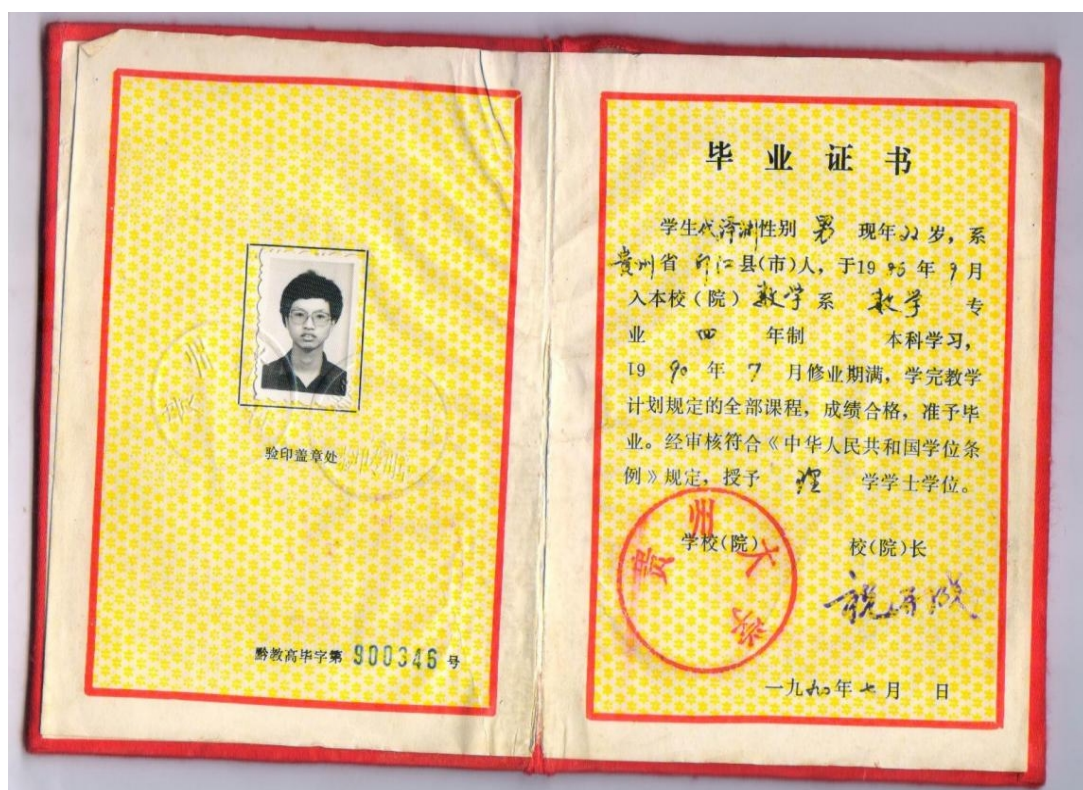 验印盖章处
黔教高毕字第 900346 号
毕业证书
学生代泽洲性别 男 现年22岁，系
贵州省 印江县(市)人，于19 86 年 9 月
入本校（院）数学 系 数学 专
业 四 年制 本科学习，
19 90 年 7 月修业期满，学完教学
计划规定的全部课程，成绩合格，准予毕
业。经审核符合《中华人民共和国学位条
例》规定，授予 理 学学士学位。
学校(院) 校(院)长
贵州大学
一九九〇年七月 日